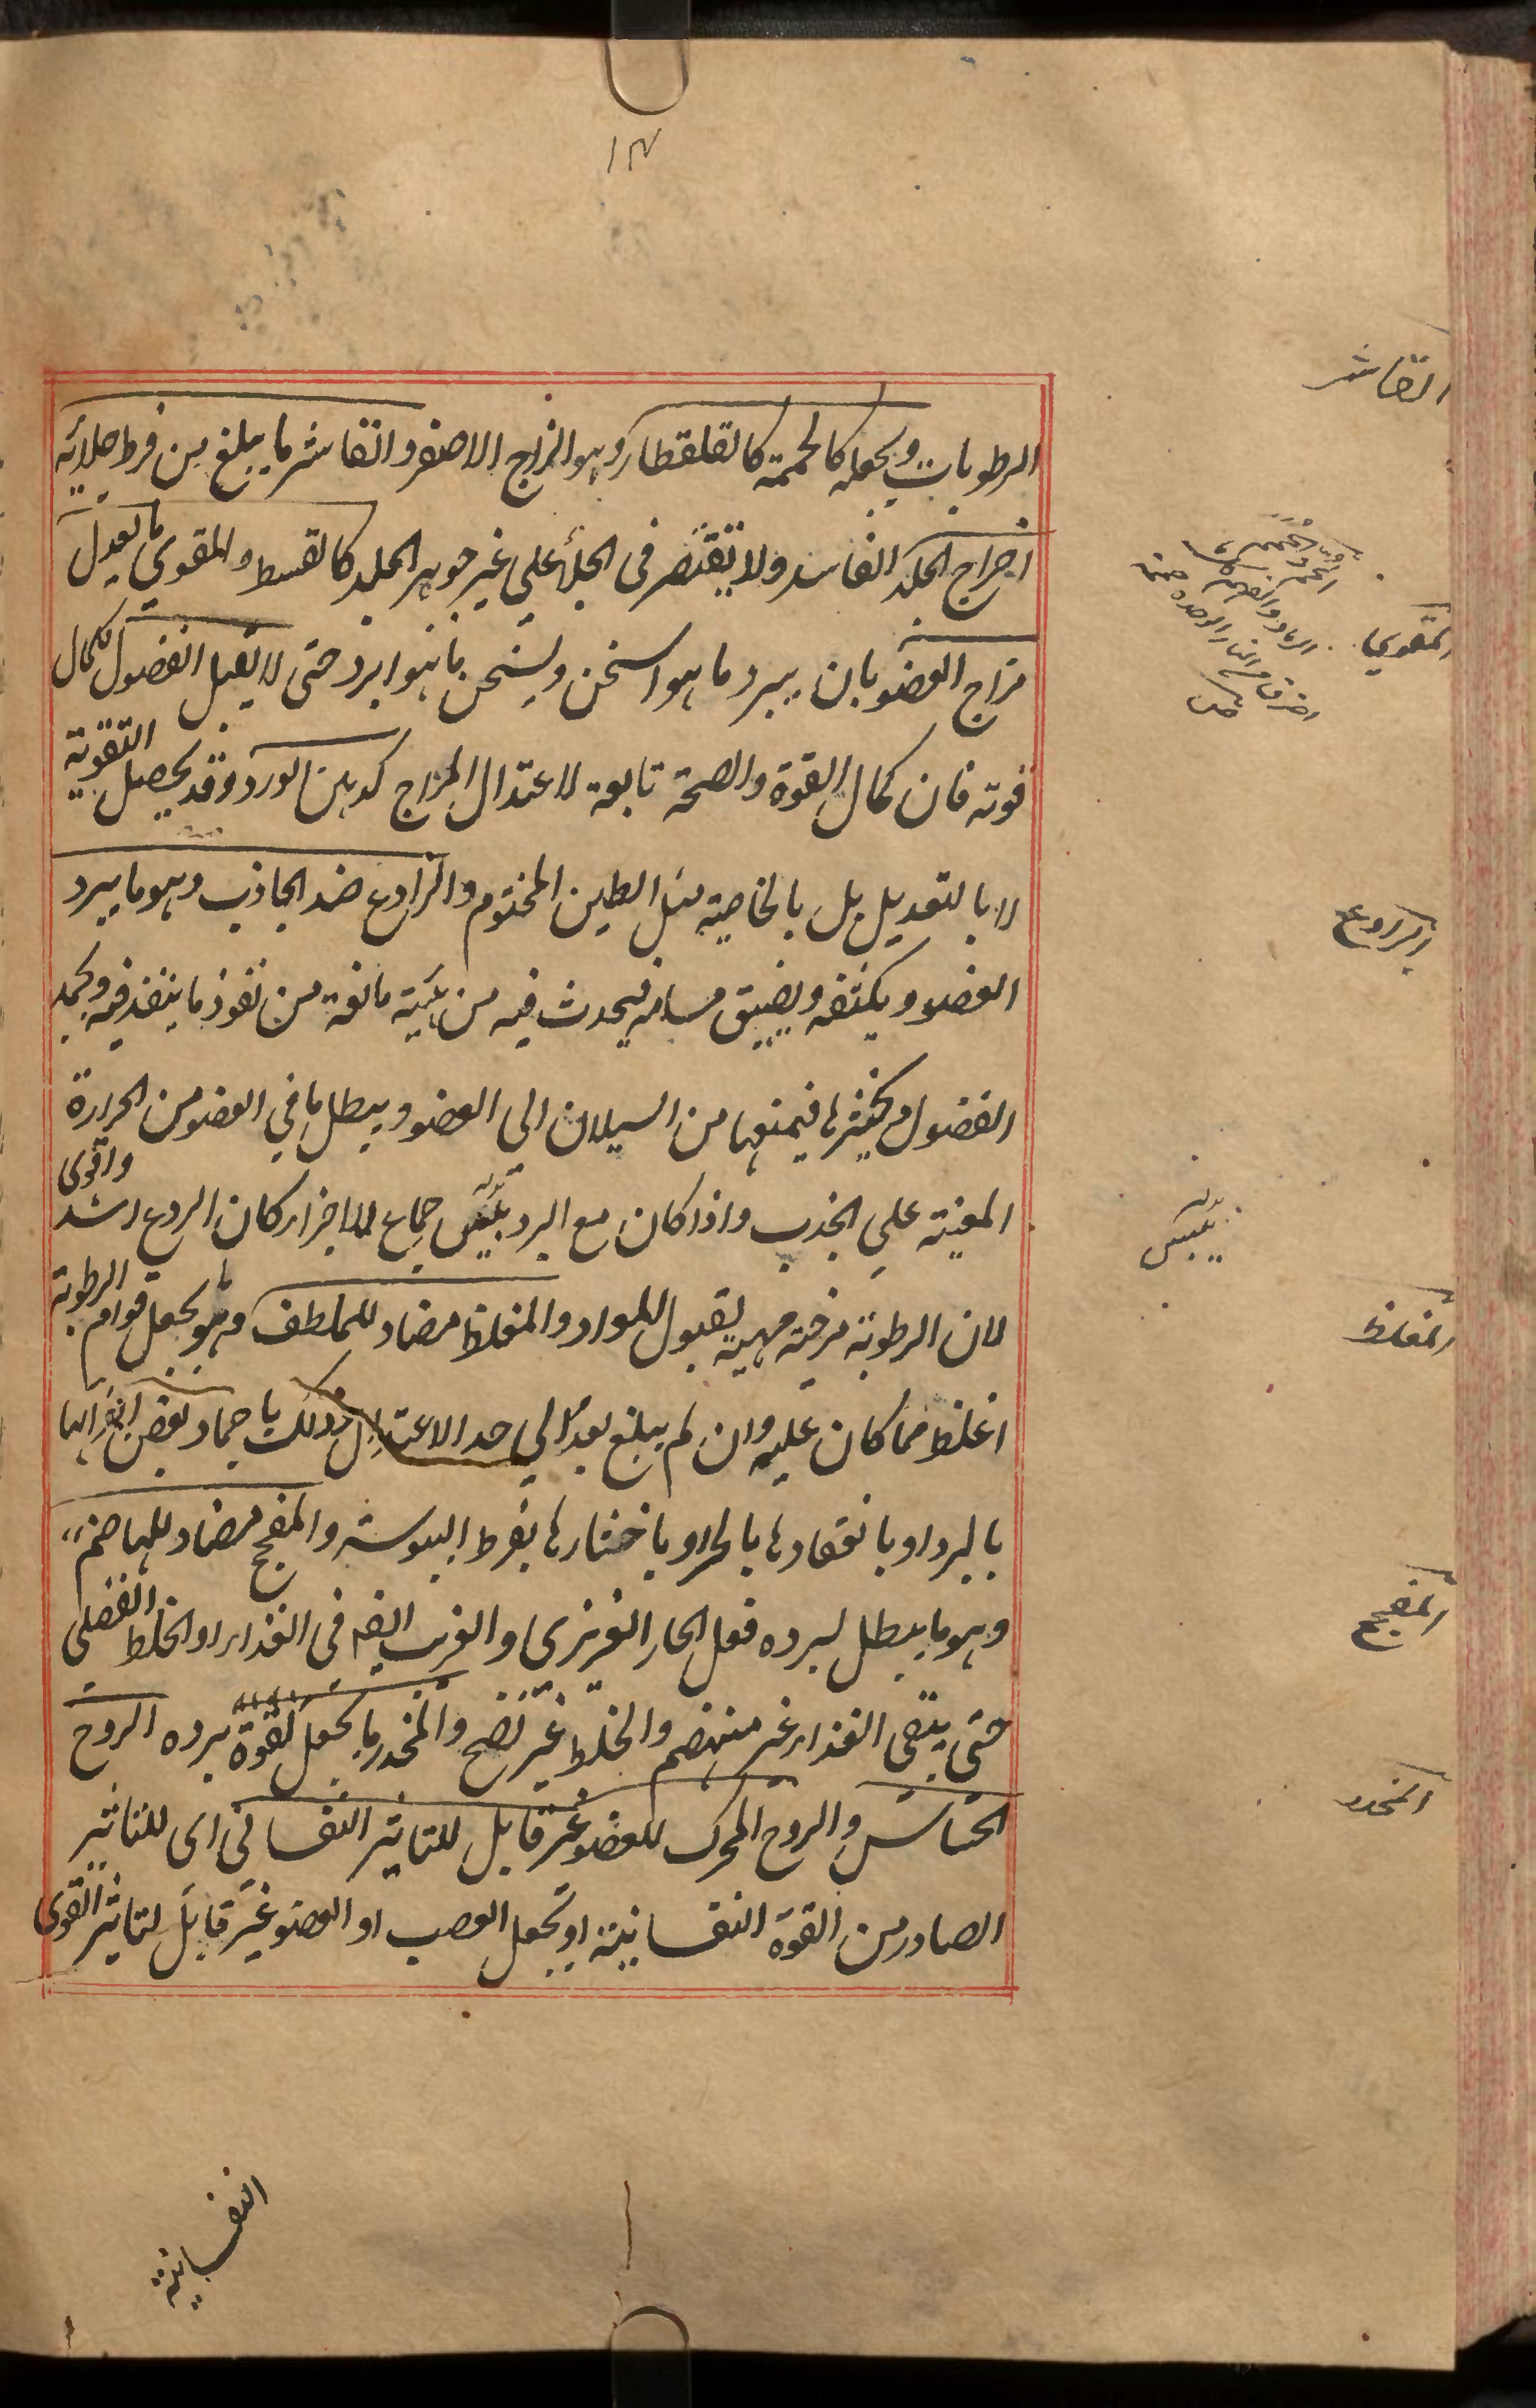 ١٣
القاشر
الرطوبات ويجعله كالحممة كالقلقطار وهو الزاج الاصفر والقاشر ما يبلغ من فرط جلائه
اخراج الجلد الفاسد ولا يقتصر فى الجلأ على غير جوهر الجلد كالقسط والمقوي ما يعدل
المقوي
مزاج العضو بان يبرد ما هو اسخن ويسخن ما هو ابرد حتى لا يقبل الفضول لكمال
قوته فان كمال القوة والصحة تابعة لاعتدال المزاج كدهن الورد وقد يحصل التقوية
لا بالتعديل بل بالخاصية مثل الطين المختوم والرادع ضد الجاذب وهو ما يبرد
الرادع
العضو ويكثفه ويضيق مسامه فيحدث فيه من هيئة مانعة من نفوذ ما ينفذ فيه ويجمد
الفضول ويخثرها فيمنعها من السيلان الى العضو ويبطل ما في العضو من الحرارة
المعينة علي الجذب واذا كان مع البرد يبس جماع للاجزاء كان الردع اشد واقوى
يبس
لان الرطوبة مرخية مهيية لقبول المواد والمغلظ مضاد للملطف وهو ما يجعل قوام الرطوبة
المغلظ
اغلظ مما كان عليه وان لم يبلغ بعد الي حد الاعتدال وذلك باجماد بعض اجزائها
بالبرد او بانعقادها بالحر او باخثارها بفرط اليبوسة والمفجج مضاد للهاضم
المفجج
وهو ما يبطل ببرده فعل الحار الغريزى والغريب ايضه فى الغذاء او الخلط الفضلى
حتى يبقى الغذاء غير منهضم والخلط غير نضج والمخدر ما يجعل لقوة برده الروح
المخدر
الحساس والروح المحرك للعضو غير قابل للتاثير النفسانى اى للتاثير
الصادر من القوة النفسانية او يجعل العصب او العضو غير قابل لتاثير القوى
النفسانية